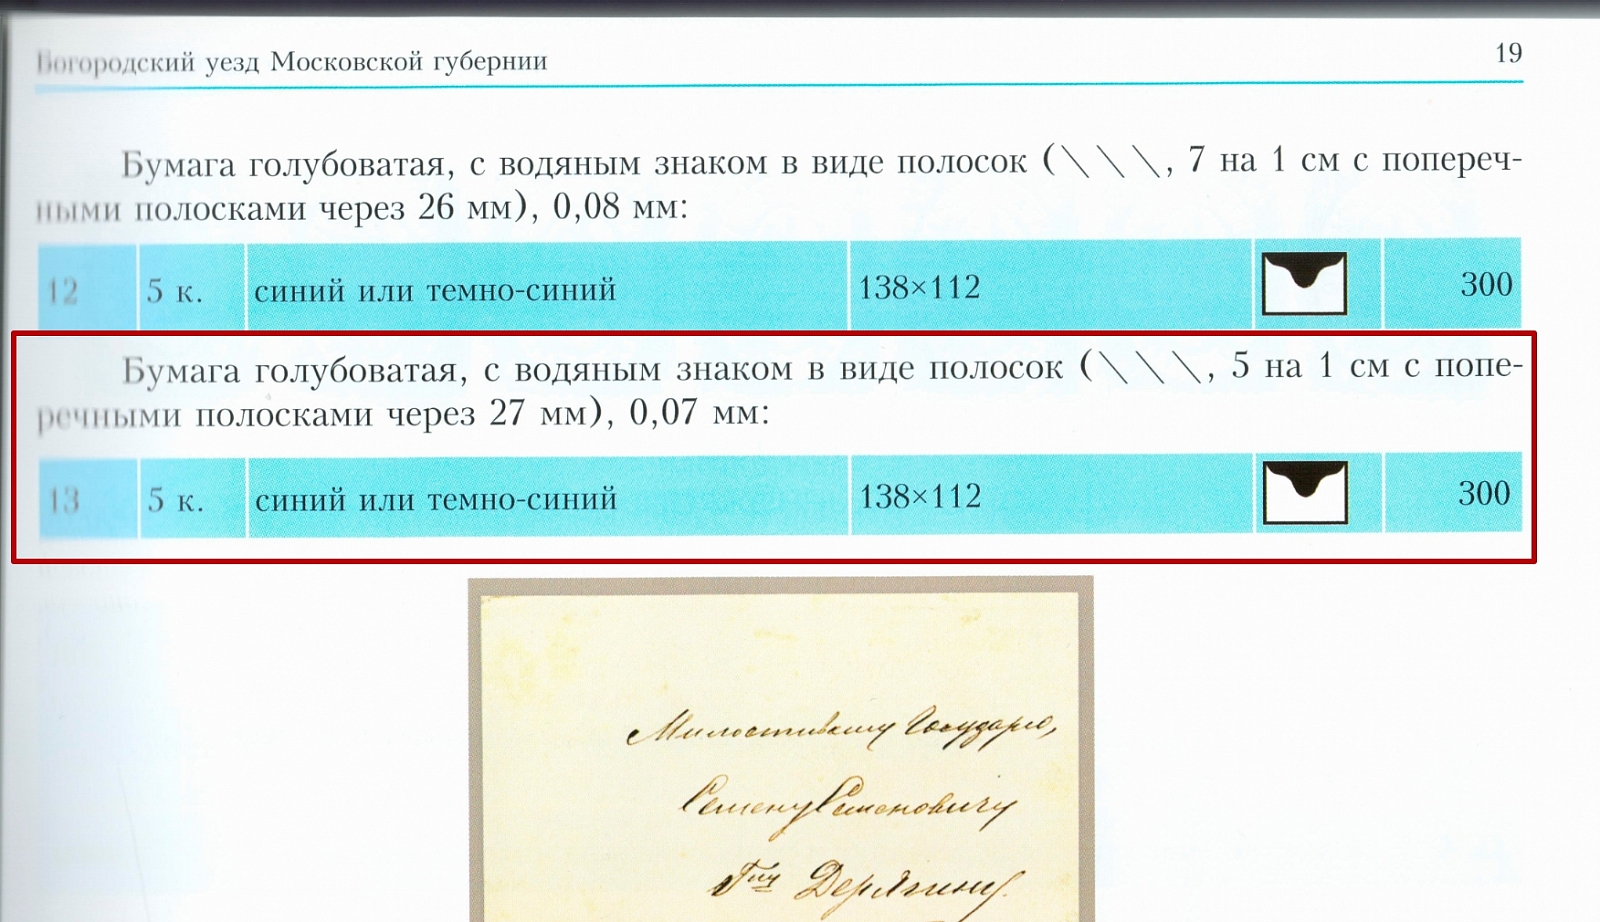 Богородский уезд Московской губернии 19
Бумага голубоватая, с водяным знаком в виде полосок (\ \ \, 7 на 1 см с попереч-
ными полосками через 26 мм), 0,08 мм:
12 5 к. синий или темно-синий 138×112 300
Бумага голубоватая, с водяным знаком в виде полосок (\ \ \, 5 на 1 см с попе-
речными полосками через 27 мм), 0,07 мм:
13 5 к. синий или темно-синий 138×112 300
Милостивому Государю,
Семену Семеновичу
Гну Дерягину.